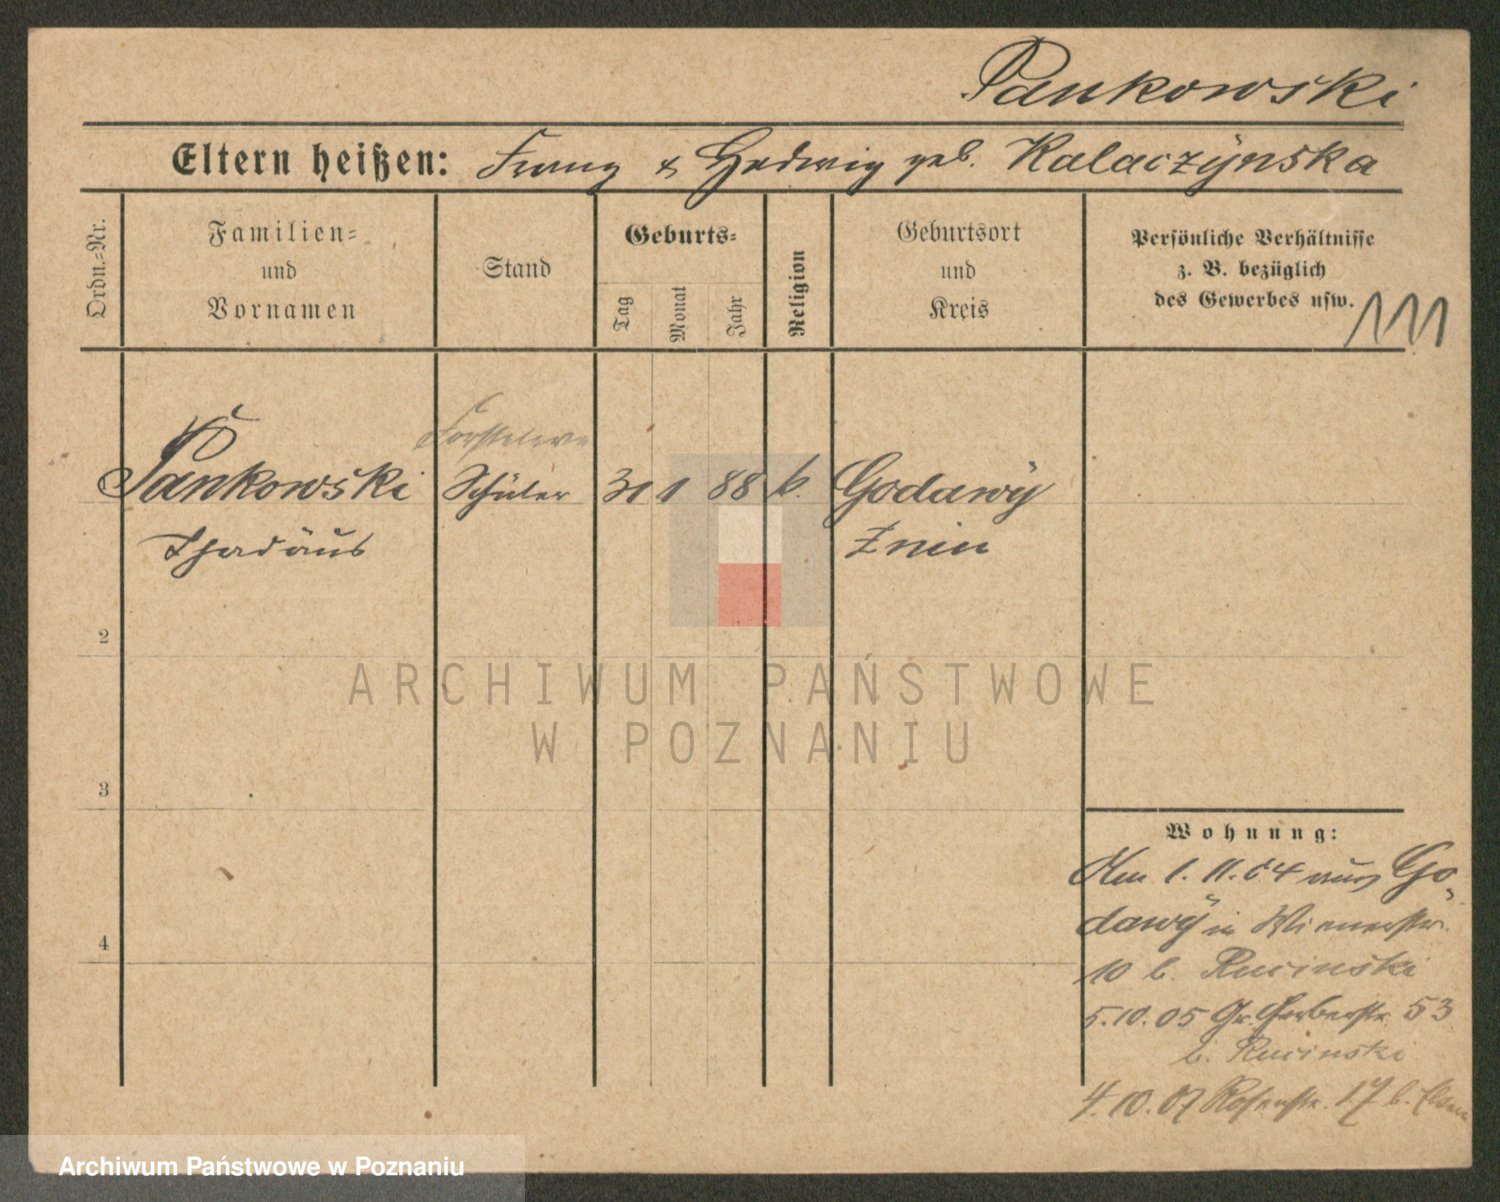 Pankowski
Eltern heißen: Franz & Hedwig geb. Kalaczÿnska
Ordn.-Nr.
Familien-
und
Vornamen
Stand
Geburts-
Tag
Monat
Jahr
Religion
Geburtsort
und
Kreis
Persönliche Verhältnisse
z. B. bezüglich
des Gewerbes usw.
111
Pankowski Schüler 31 1 88 k. Godawÿ
Thadäus Znin
2
3
4
Wohnung:
Am 1. 11. 04 aus Go-
dawÿ in Wienerstr.
10 b. Rucinski
5.10.05 Gr. Gerberstr. 53
b. Rucinski
4.10.07 Rosenstr. 17 b.
ARCHIWUM PAŃSTWOWE
W POZNANIU
Archiwum Państwowe w Poznaniu